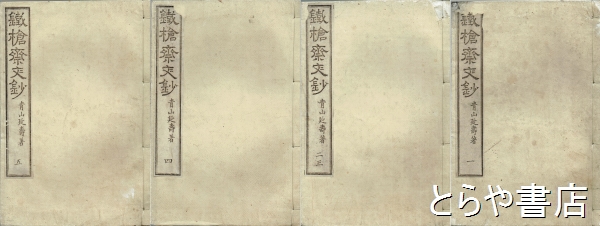 鐵槍齋文鈔
青山延壽著
一
鐵槍齋文鈔
青山延壽著
二三
鐵槍齋文鈔
青山延壽著
四
鐵槍齋文鈔
青山延壽著
五
とらや書店